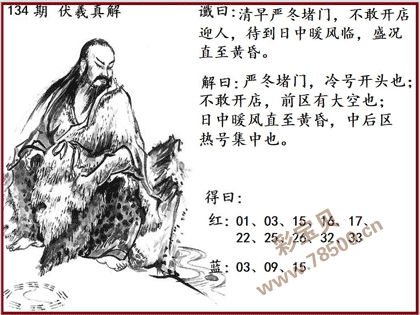 134 期 伏羲真解
谶曰:清早严冬堵门,不敢开店
迎人,待到日中暖风临,盛况
直至黄昏。
解曰:严冬堵门,冷号开头也;
不敢开店,前区有大空也;
日中暖风直至黄昏,中后区
热号集中也。
得曰:
红:01、03、15、16、17、
22、25、26、32、33
蓝:03、09、15
彩宝贝
www.78500.cn